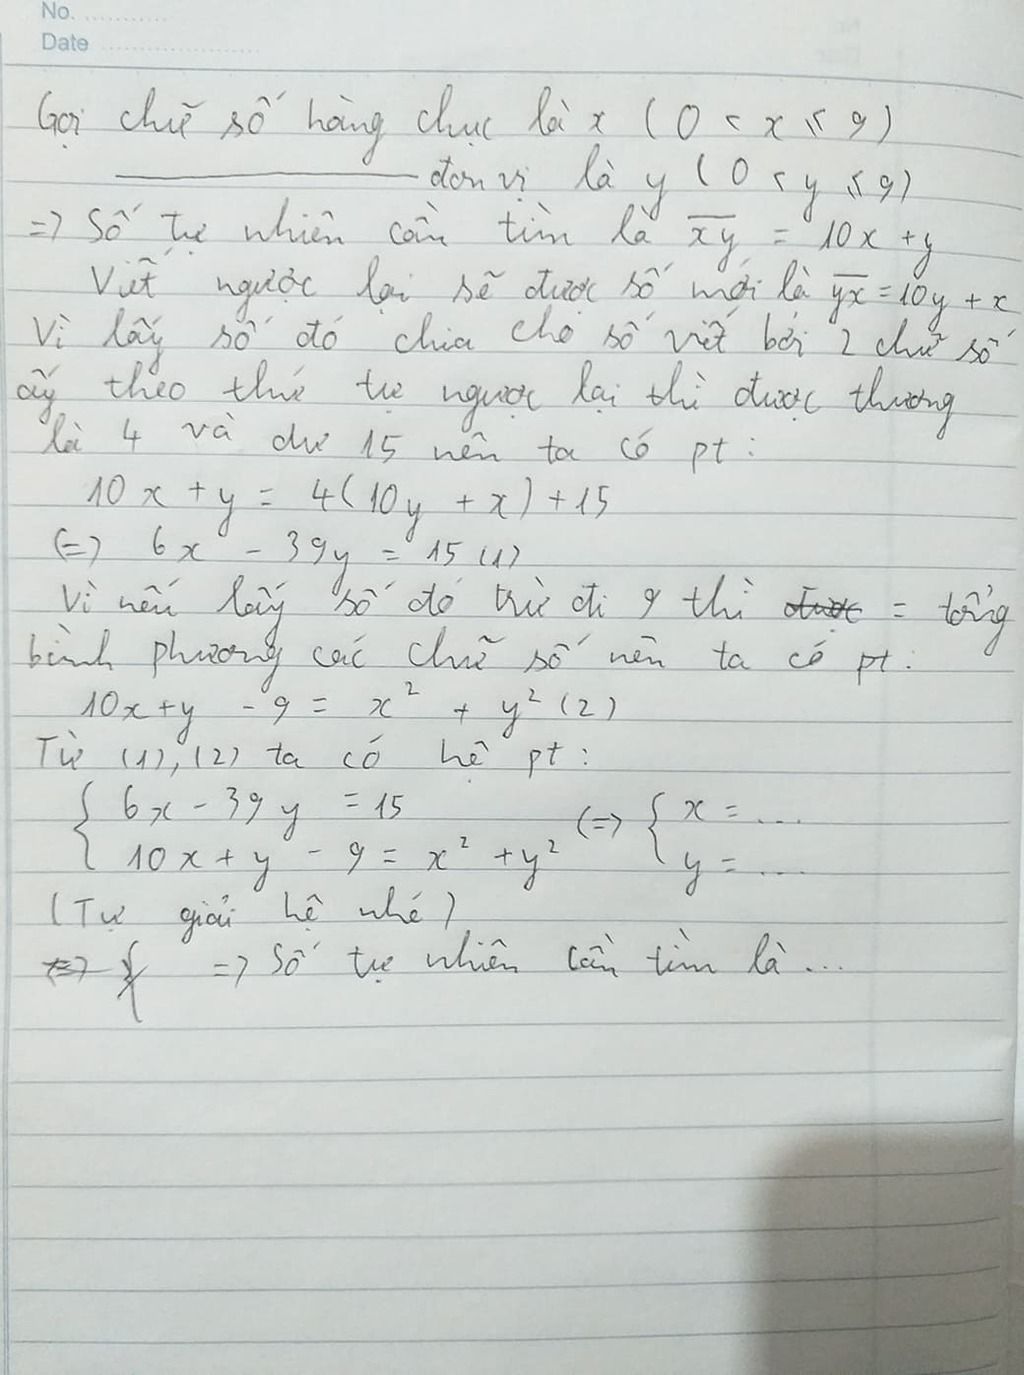 No. ............
Date .......................
Gọi chữ số hàng chục là x (0 < x ≤ 9)
——————— đơn vị là y (0 < y ≤ 9)
=> Số tự nhiên cần tìm là \overline{xy} = 10x + y
Viết ngược lại sẽ được số mới là \overline{yx} = 10y + x
Vì lấy số đó chia cho số viết bởi 2 chữ số
ấy theo thứ tự ngược lại thì được thương
là 4 và dư 15 nên ta có pt:
10x + y = 4(10y + x) + 15
(=) 6x - 39y = 15 (1)
Vì nếu lấy số đó trừ đi 9 thì được = tổng
bình phương các chữ số nên ta có pt:
10x + y - 9 = x² + y² (2)
Từ (1), (2) ta có hệ pt:
{ 6x - 39y = 15 (=> { x = ...
10x + y - 9 = x² + y² y = ...
(Tự giải hệ nhé)
=> Số tự nhiên cần tìm là ...